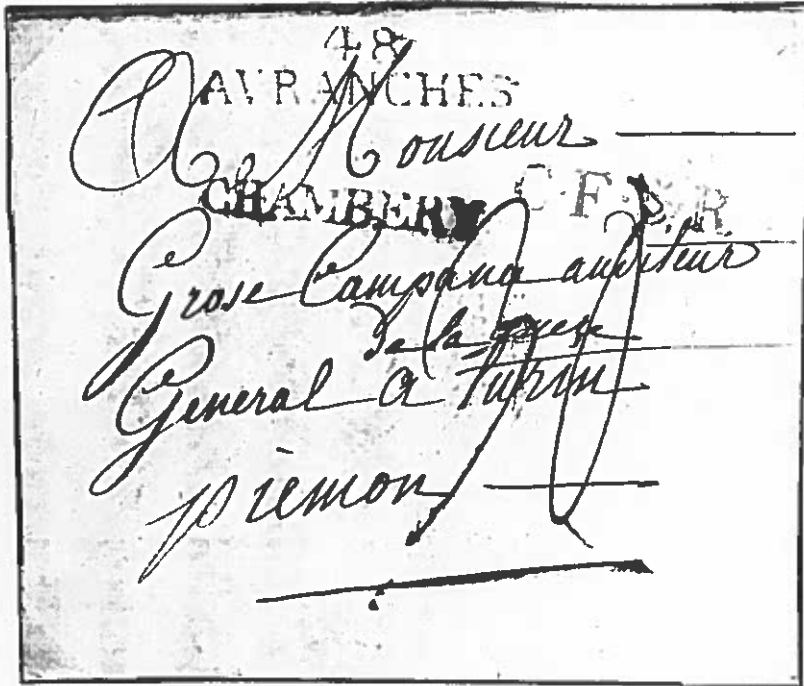 48
AVRANCHES
A Monsieur
CHAMBERY C.F.P.R
Grose Campana auditeur
de la guere
General a turin
piemon